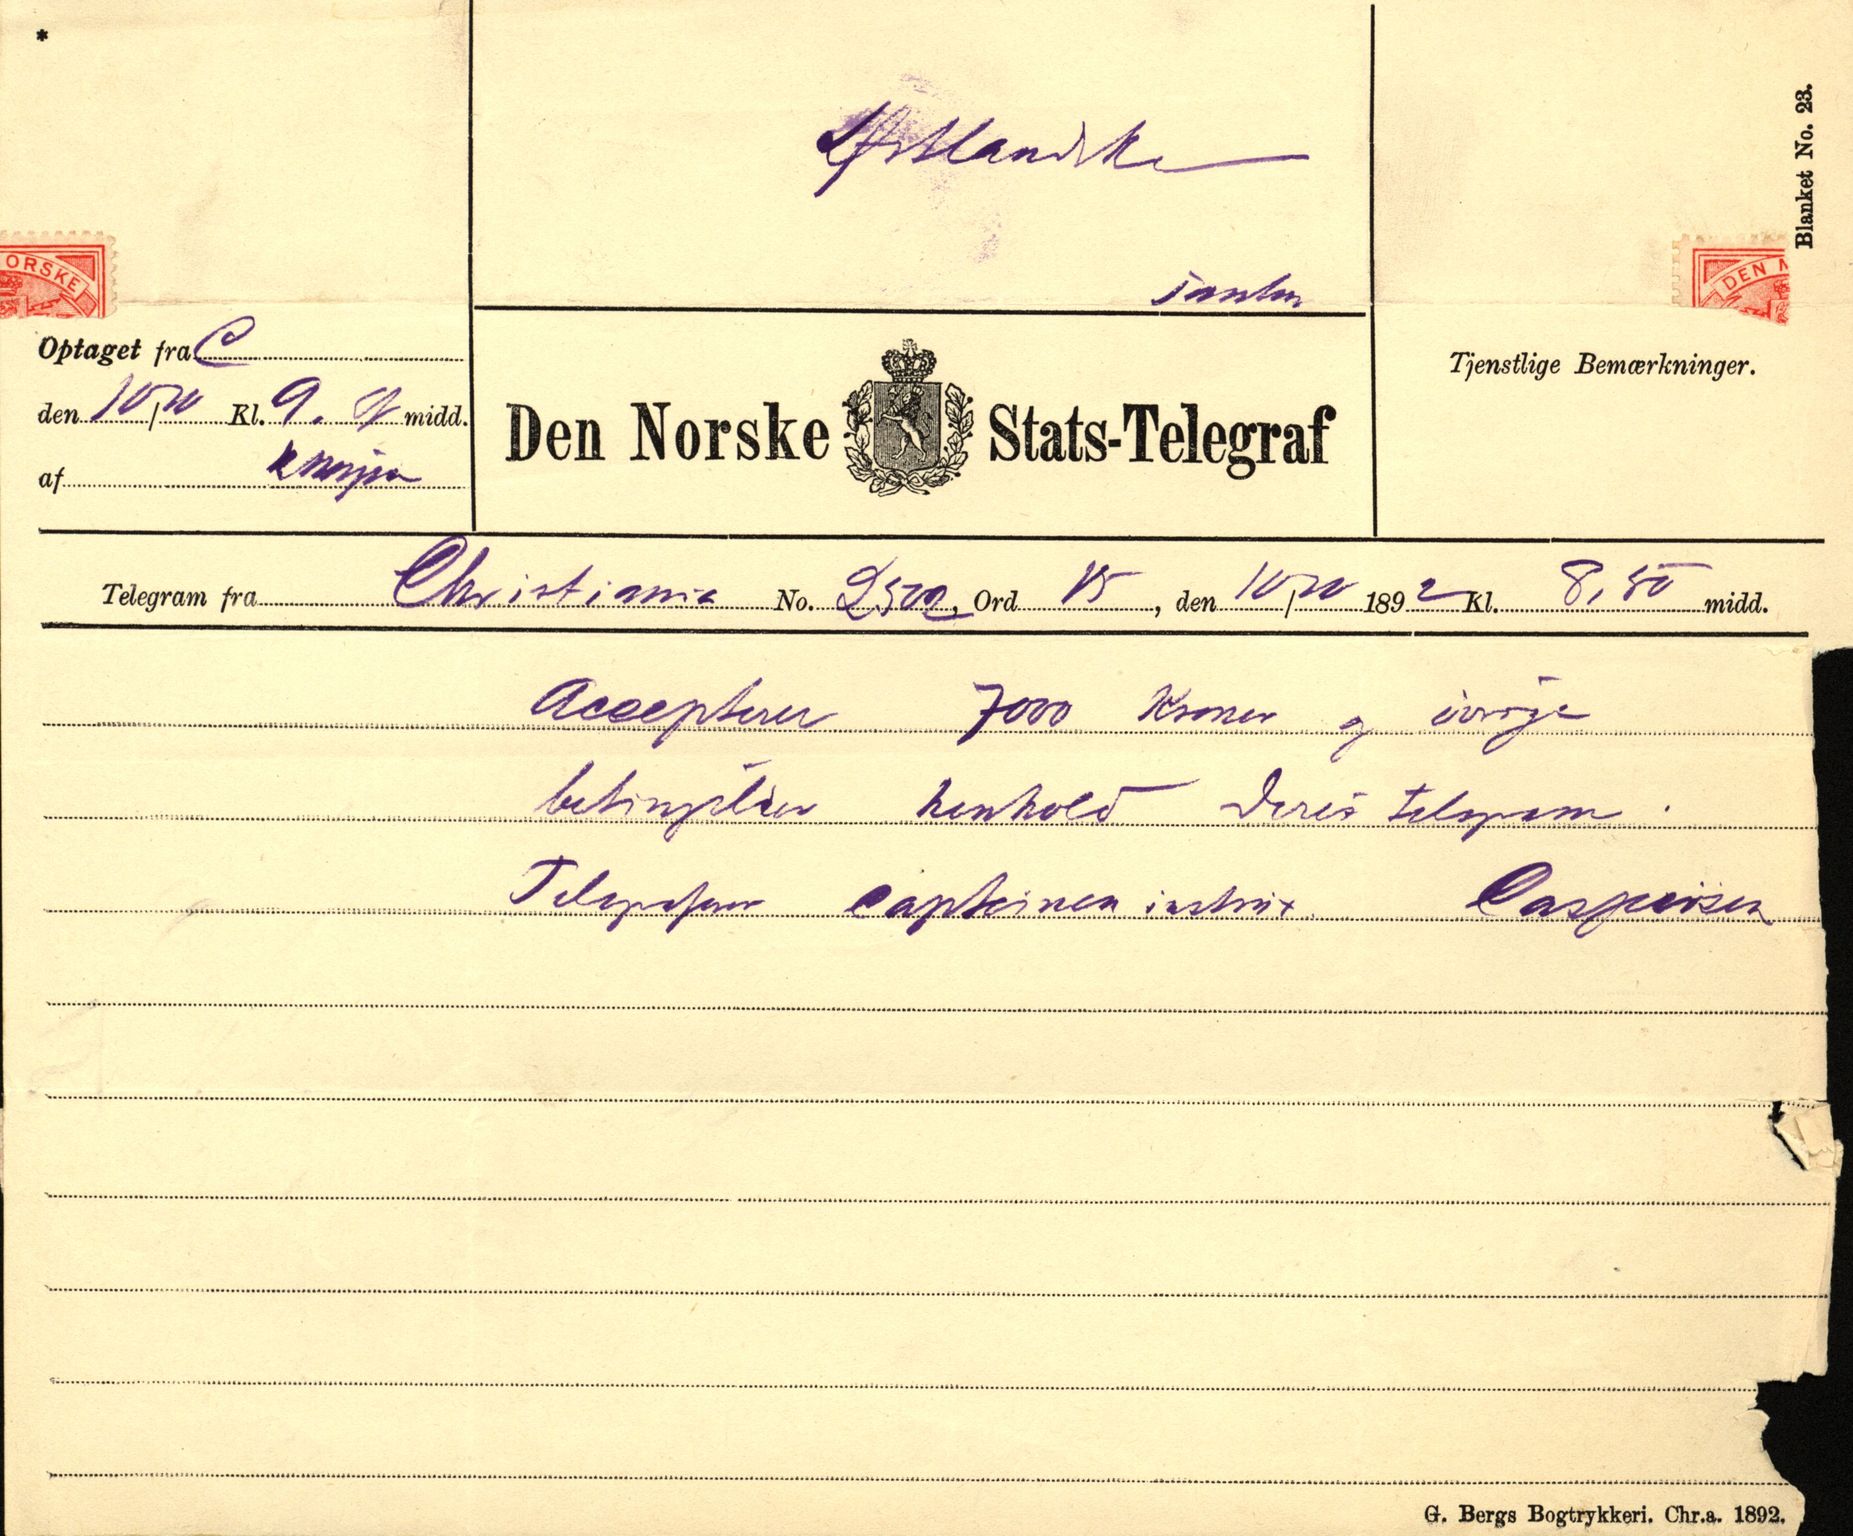 *
Blanket No. 23.
Østlandske
ORSKE
DEN N
Optaget fra C
den 10/10 Kl. 9. f midd.
af
Den Norske Stats-Telegraf
Tjenstlige Bemærkninger.
Telegram fra Christiania No. 2502, Ord 15, den 10/10 1892 Kl. 8,50 midd.
Accepterer 7000 Kroner og øvrige
betingelser henhold Deres telegram.
Telegrafener capteinen instrux. Caspersen
G. Bergs Bogtrykkeri. Chr.a. 1892.